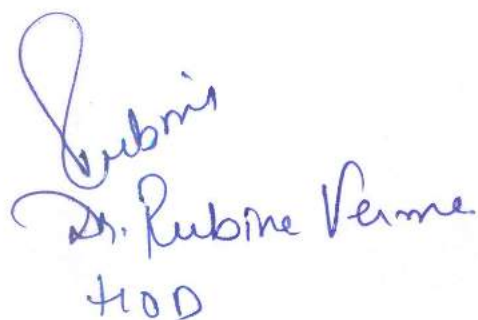 Rubini
Dr. Rubine Verma
HOD